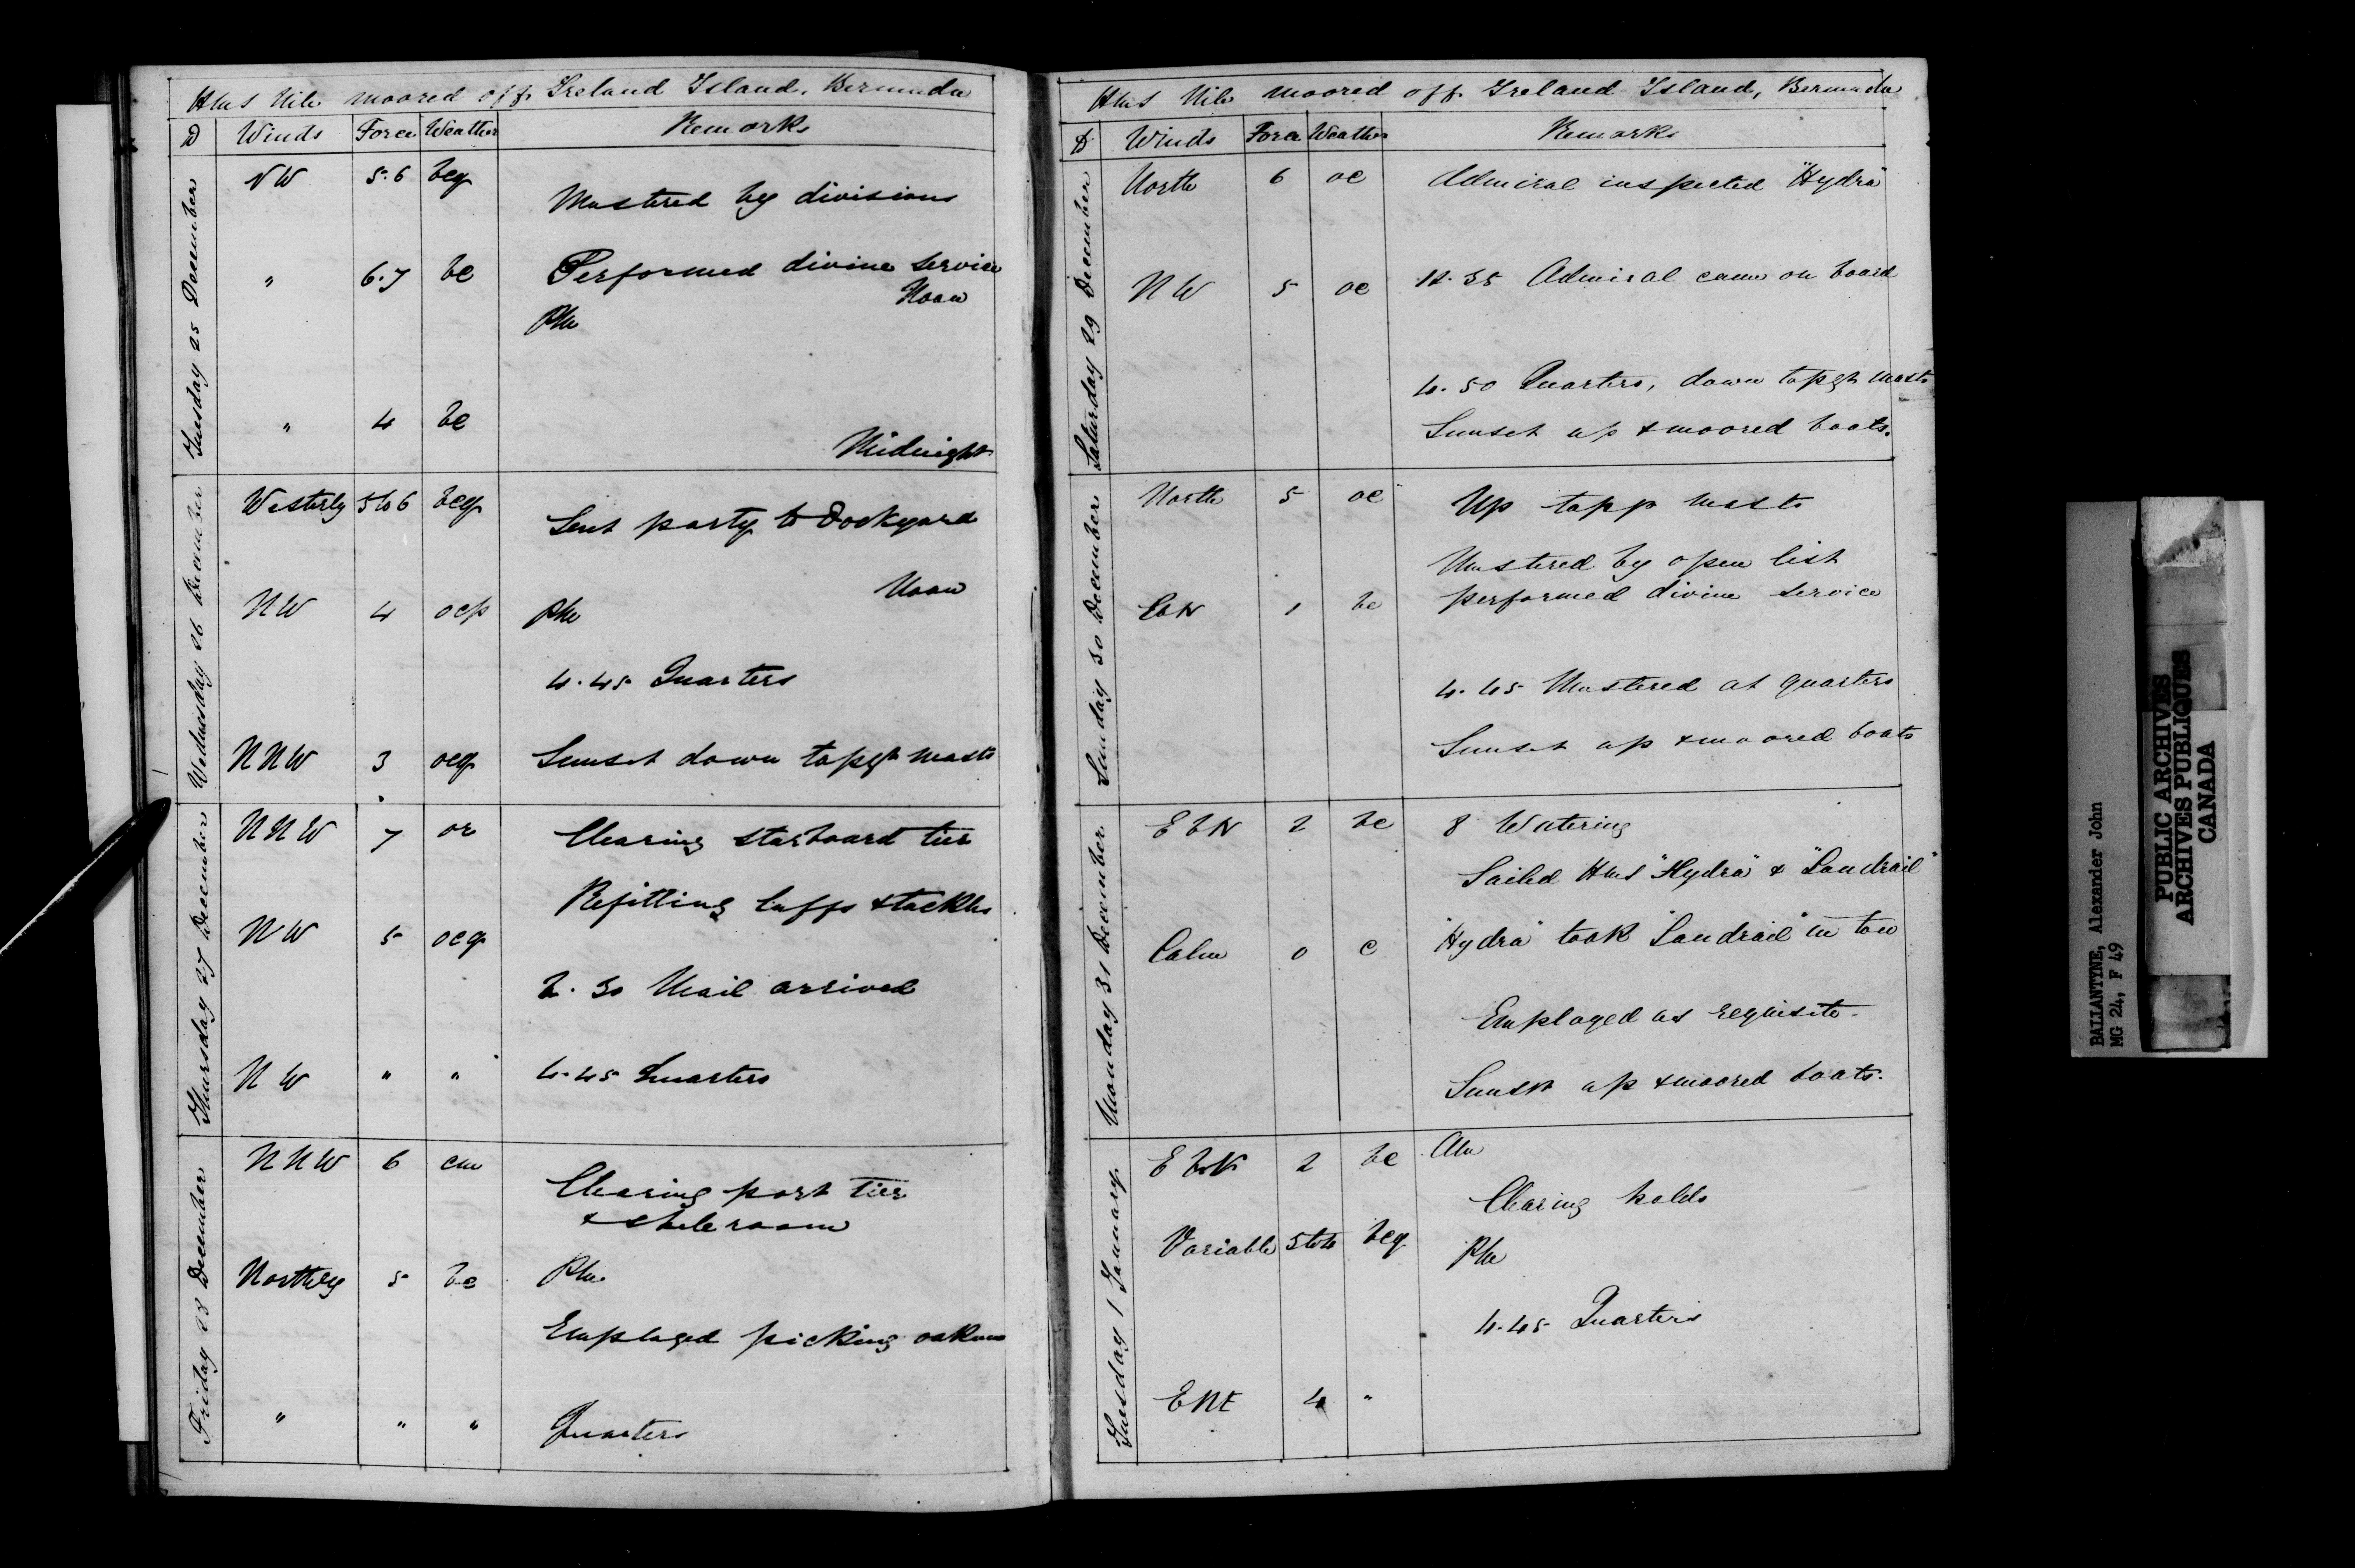 HMS Nile moored off Ireland Island, Bermuda
D Winds Force Weather Remarks
Tuesday 25 December
NW 5.6 bcq
Mustered by divisions
" 6.7 bc Performed divine service
Noon
PM
" 4 bc
Midnight
Wednesday 26 December
Westerly 5 to 6 bcq
Sent party to Dockyard
Noon
NW 4 ocp PM
4.45 Quarters
NNW 3 ocq Sunset down topgt masts
Thursday 27 December
NNW 7 or Clearing starboard tier
Refitting luffs & tackles
NW 5 ocq
2.30 Mail arrived
NW " " 4.45 Quarters
Friday 28 December
NNW 6 cm
Clearing port tier
& shell room
Northerly 5 bc PM
Employed picking oakum
" " " Quarters
HMS Nile moored off Ireland Island, Bermuda
D Winds Force Weather Remarks
Saturday 29 December
North 6 oc Admiral inspected "Hydra"
NW 5 oc 12.35 Admiral came on board
4.50 Quarters, down topgt masts
Sunset up & moored boats.
Sunday 30 December
North 5 oc Up masts
Mustered by open list
EbN 1 bc performed divine service
4.45 Mustered at quarters
Sunset up & moored boats
Monday 31 December
EbN 2 bc 8 Watering
Sailed HMS "Hydra" & "Landrail"
Calm 0 c "Hydra" took "Landrail" in tow
Employed as requisite.
Sunset up & moored boats.
Tuesday 1 January
EbN 2 bc AM
Clearing holds
Variable 5 to 4 bcq PM
4.45 Quarters
ENE 4 "
BALLANTYNE, Alexander John
MG 24, F 49
PUBLIC ARCHIVES
ARCHIVES PUBLIQUES
CANADA